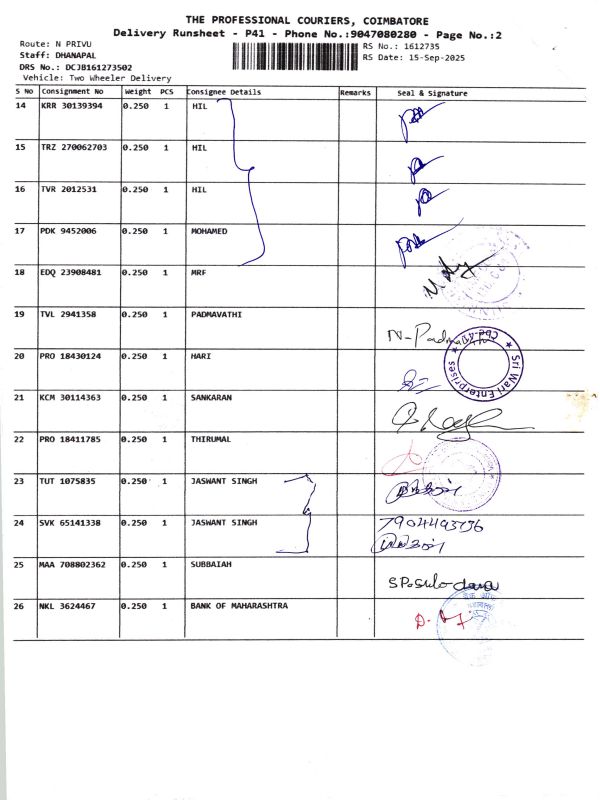 THE PROFESSIONAL COURIERS, COIMBATORE
Delivery Runsheet - P41 - Phone No.:9047080280 - Page No.:2
Route: N PRIVU
RS No.: 1612735
Staff: DHANAPAL
RS Date: 15-Sep-2025
DRS No.: DCJB161273502
Vehicle: Two Wheeler Delivery
S No Consignment No Weight PCS Consignee Details Remarks Seal & Signature
14 KRR 30139394 0.250 1 HIL
15 TRZ 270062703 0.250 1 HIL
16 TVR 2012531 0.250 1 HIL
17 PDK 9452006 0.250 1 MOHAMED
18 EDQ 23908481 0.250 1 MRF
19 TVL 2941358 0.250 1 PADMAVATHI
N-Padma
20 PRO 18430124 0.250 1 HARI
Sri Wari Enterprises
21 KCM 30114363 0.250 1 SANKARAN
22 PRO 18411785 0.250 1 THIRUMAL
23 TUT 1075835 0.250 1 JASWANT SINGH
24 SVK 65141338 0.250 1 JASWANT SINGH 7904493736
25 MAA 708802362 0.250 1 SUBBAIAH
26 NKL 3624467 0.250 1 BANK OF MAHARASHTRA